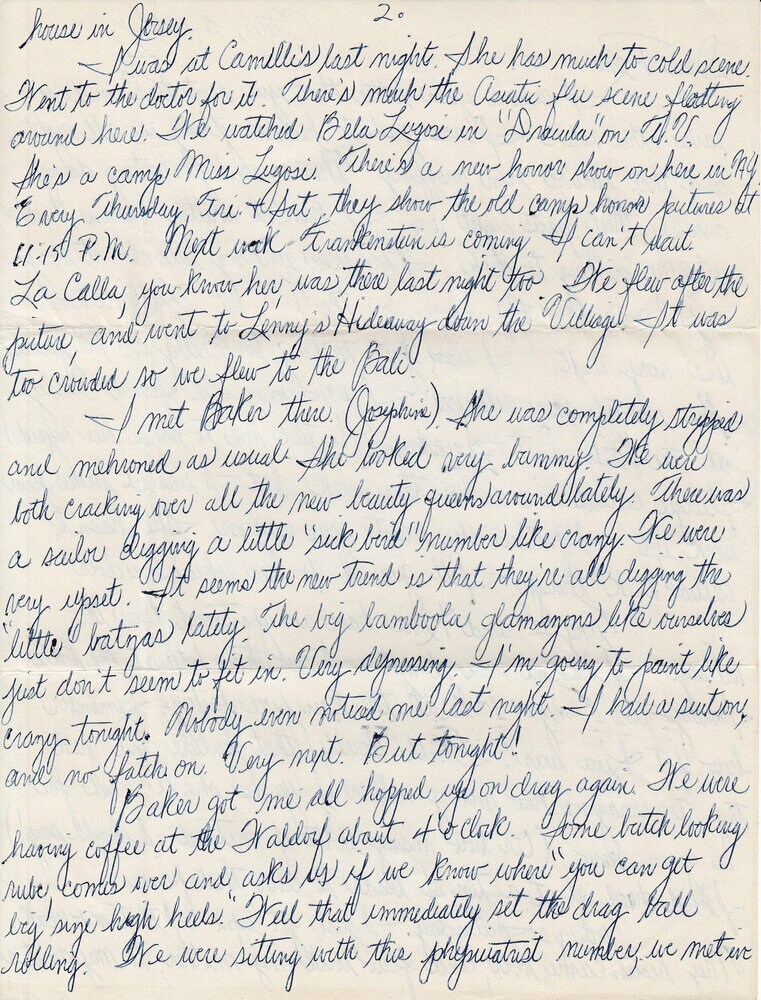 2.
house in Jersey.
I was at Camille's last night. She has much to cold scene.
Went to the doctor for it. There's much the Asiatic flu scene floating
around here. We watched Bela Lugosi in "Dracula" on T.V.
She's a camp Miss Lugosi. There's a new horror show on here in NY.
Every Thursday, Fri. & Sat, they show the old camp horror pictures at
11:15 P.M. Next week Frankenstein is coming. I can't wait.
La Calla, you know her, was there last night too. We flew after the
picture, and went to Lenny's Hideaway down the Village. It was
too crowded so we flew to the Bali.
I met Baker there. (Josephine). She was completely stripped
and mehroned as usual. She looked very bammy. We were
both cracking over all the new beauty queens around lately. There was
a sailor digging a little "sick bird" number like crazy. We were
very upset. It seems the new trend is that they're all digging the
"little" batzas lately. The big bamboola glamazons like ourselves
just don't seem to fit in. Very depressing. I'm going to paint like
crazy tonight. Nobody even noticed me last night. I had a suit on,
and no fatch on. Very nept. But tonight!
Baker got me all hopped up on drag again. We were
having coffee at the Waldorf about 4 o'clock. Some butch looking
rube, comes over and asks us if we know where "you can get
big size high heels." Well that immediately set the drag ball
rolling. We were sitting with this physciatrist number we met in